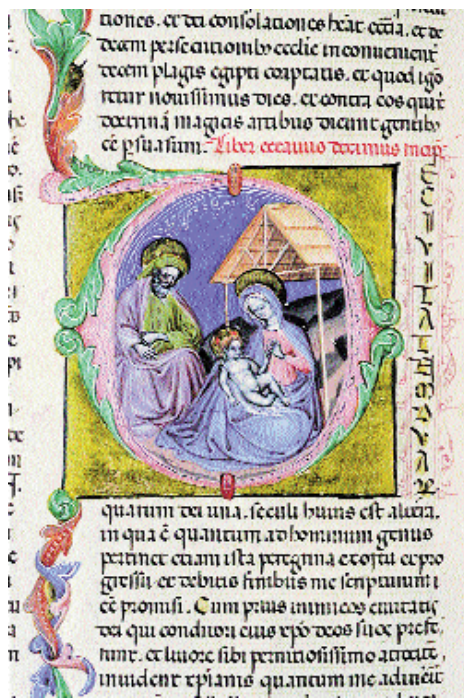 tiones. et dei consolationes heat eccīa. et de
decem persecutionibȝ ecclie inconuenient̄
decem plagis egipti coaptatis. et quod igno
retur nouissimus dies. et contra eos qui
doctrinā magicis artibus dicunt gentibȝ
ēē p̄suasam. Liber octauus decimus incip̄
ECIVITATIB
quarum dei una. seculi huius est altera.
in qua ē quantum ad hominum genus
pertinet etiam ista peregrina et ortu et pro
gressu et debitis finibus me scripturum
ēē promisi. Cum prius inimicos ciuitatis
dei qui conditori eius xp̄o deos suos prefe
runt. et liuore sibi perniciosissimo atrocit̄
inuident xp̄ianis quantum me adiuuit